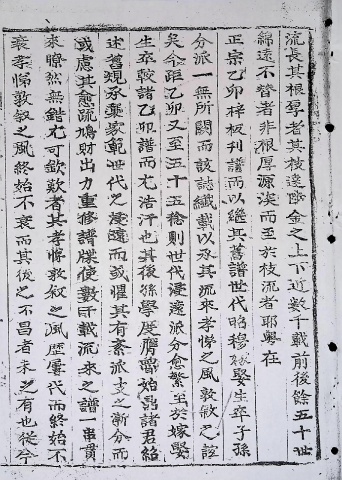 流長其根厚者其枝達際金之上下近数千載前後餘五十世
綿遠不替者非根厚源深而至於枝流者耶粤在
正宗乙卯梓板刊譜而以継其旧譜世代昭穆嫁娶生卒子孫
分派一無所闕而該誌纖載以承其流來孝悌之風敦敘之誼
矣今距乙卯又至五十五稔則世代浸遠派分愈繁至於嫁娶
生卒較諸乙卯譜而尤浩汗也其後孫學 諸君紹
述舊規承襲家範世代之浸遠而或懼其有紊派支之漸分而
或慮其愈疏鳩財出力重修譜牒使數千載流來之譜一串貫
來瞭然無錯尤可欽歎者其孝悌敦敘之風歷屢代而終始不
衰孝悌敦敘之風終始不衰而其後之不昌者未之有也從今